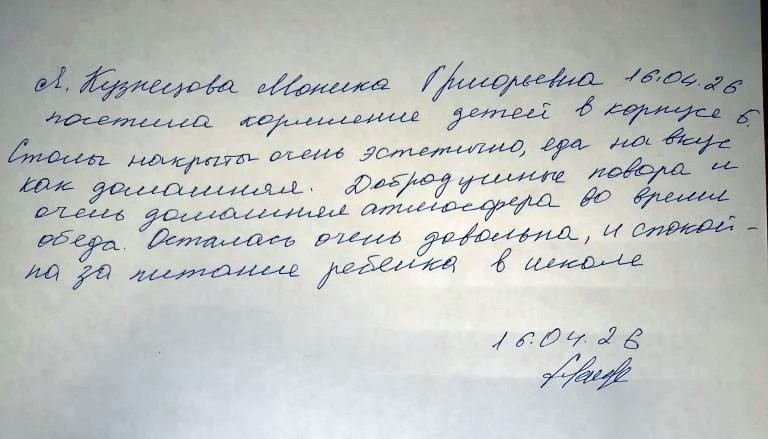 Я. Кузнецова Моника Григорьевна 16.04.26
посетила кормление детей в корпусе Б.
Столы накрыты очень эстетично, еда на вкус
как домашняя. Добродушные повора и
очень домашняя атмосфера во время
обеда. Осталась очень довольна, и спокой-
на за питание ребенка в школе
16.04.26